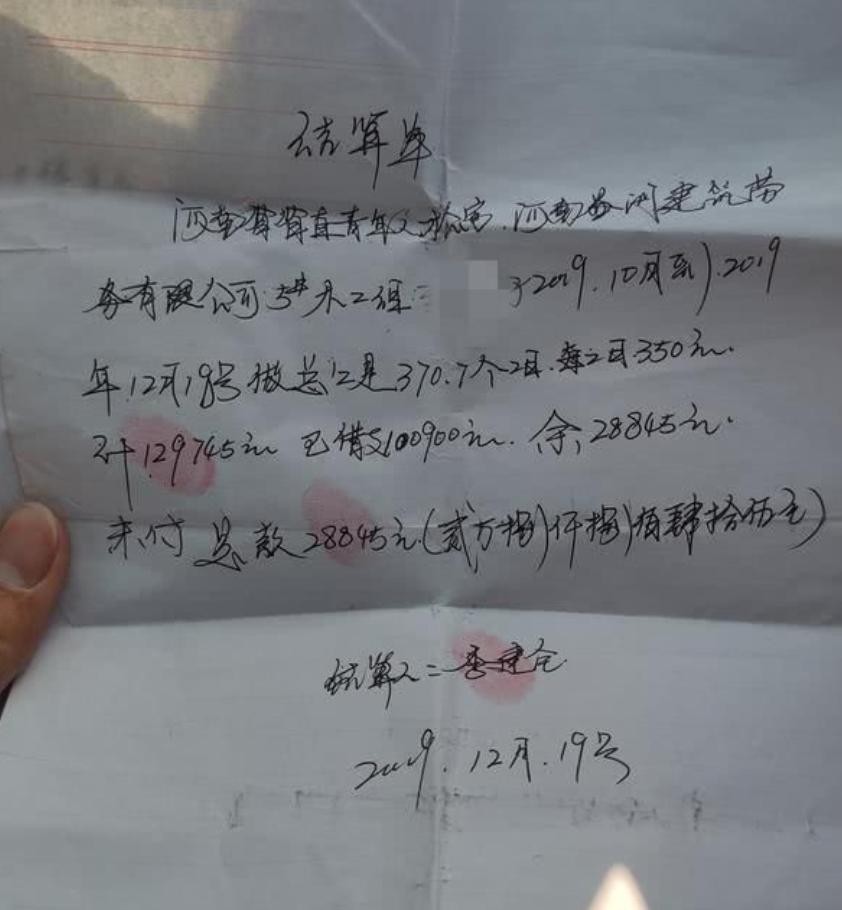 结算单
河南省省直青年人才公寓.河南 建筑劳
务有限公司:5#木工组: 于2019.10月到.2019
年.12月18号做总工是370.7个工日.每工日350元.
计129745元 已借支100900元. 余28845元.
未付总款28845元(贰万捌仟捌佰肆拾伍元)
结算人: 李建全
2019.12月.19号